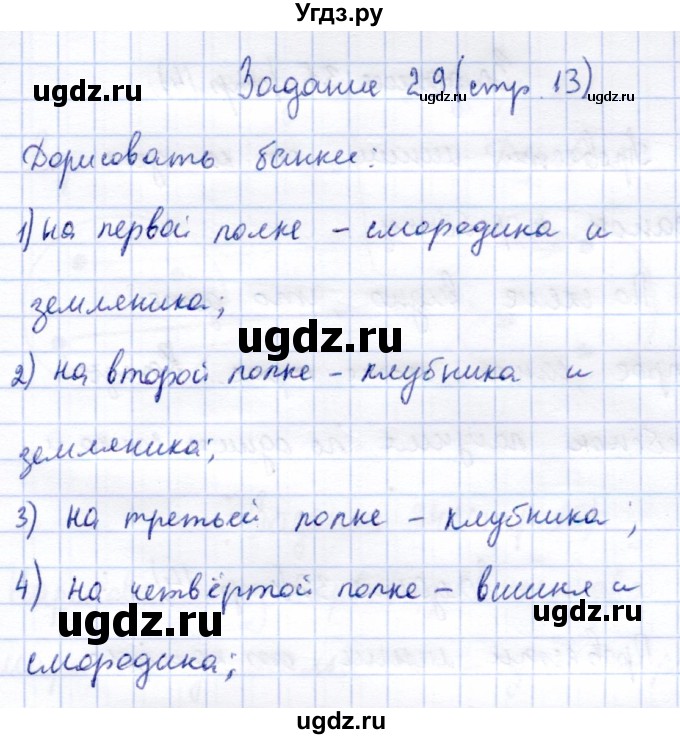 Угдз.ру
Задание 29 (стр. 13)
ugdz.ru
ugdz.ru
ugdz.ru
Дорисовать банки:
1) на первой полке – смородина и
земляника;
ugdz.ru
2) на второй полке – клубника и
земляника;
3) на третьей полке – клубника;
4) на четвёртой полке – вишня и
ugdz.ru
ugdz.ru
смородина;
ugdz.ru